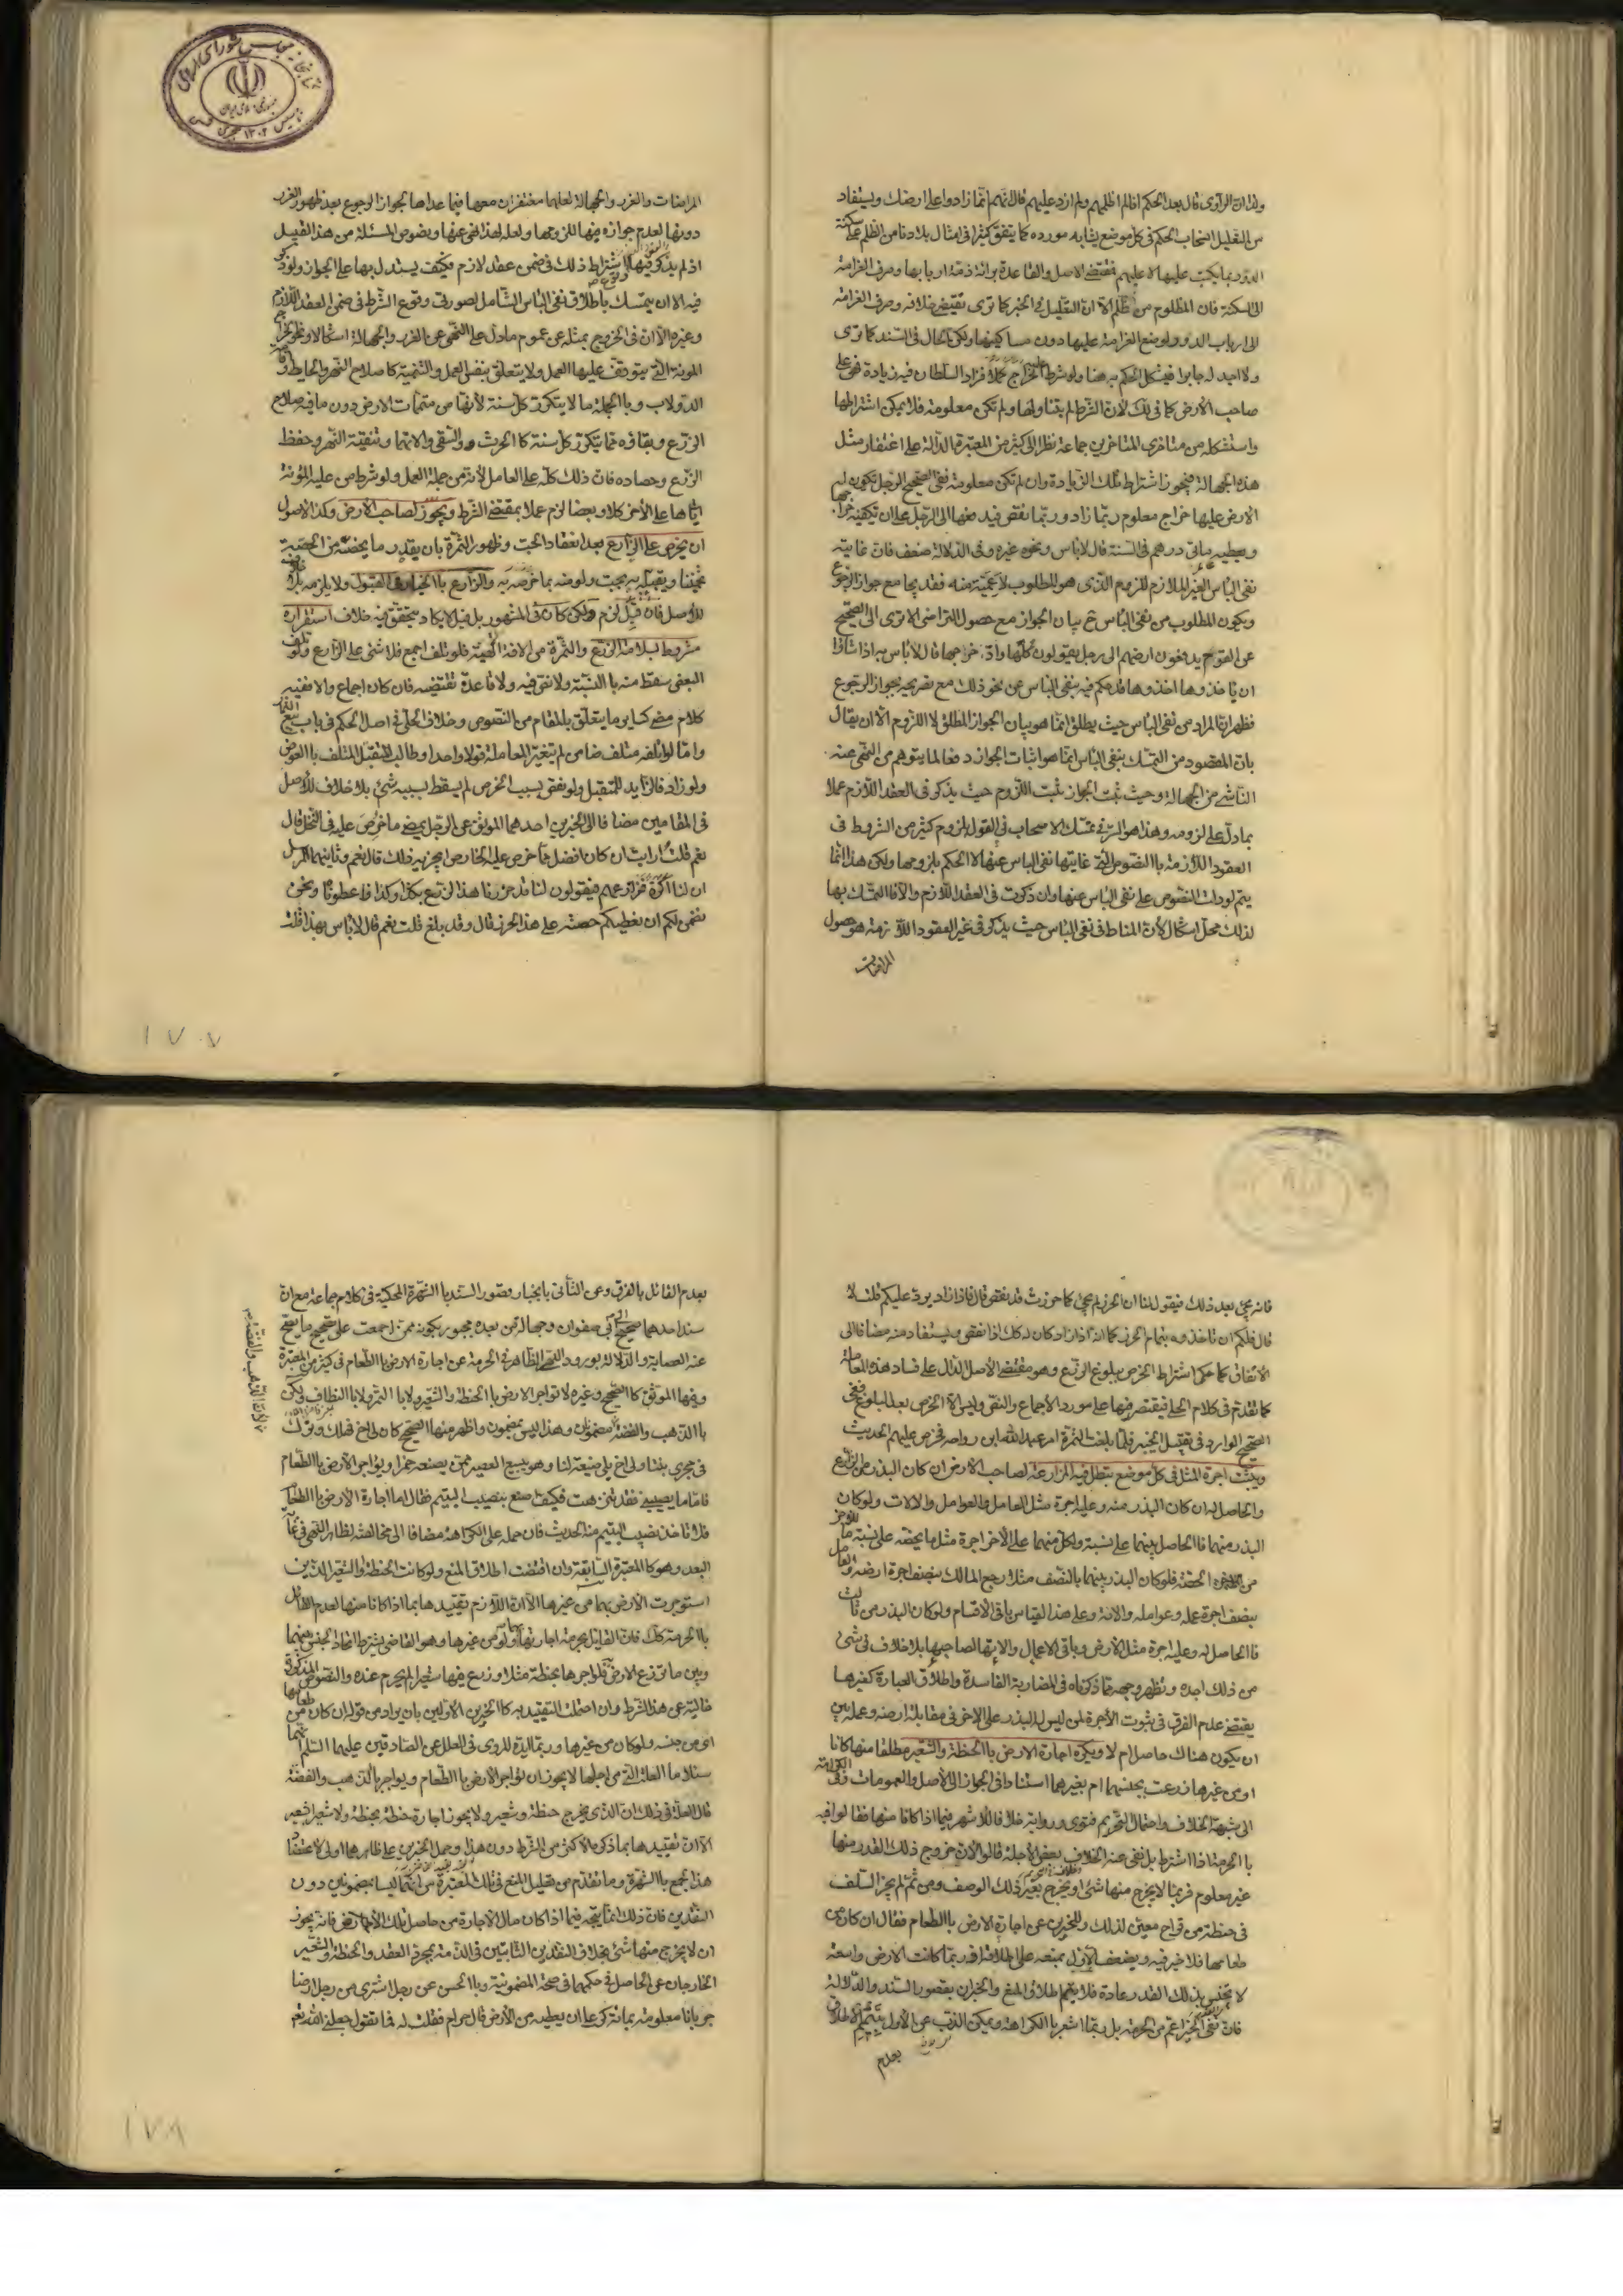 ولذا ان الراوی قال بعد الحكم اقلم اظلمهم ولم ازد عليهم قال انهم انما زادوا على ارضك ويستفاد
من التعليل انسحاب الحكم فى كل موضع يشابه مورده كما يتفق كثيرا فى امثال بلادنا من الظلم على سكنة
الدور بما يكتب عليها لا عليهم فمقتضى الاصل والقاعدة برائة ذمة اربابها وصرف الغرامة
الى السكنة فان المظلوم من ظلم الا ان التعليل فى الخبر كما ترى يقتضى خلافه وصرف الغرامة
الى ارباب الدور ولوضع الغرامة عليها دون مساكنيها ولكن الحال فى السند كما ترى
ولا اجد له جابرا فيشكل الحكم به هنا ولو شرط الخراج على العامل فزاد السلطان فيه زيادة فهى على
صاحب الارض كما فى لك لان الشرط لم يتناولها ولم تكن معلومة فلا يمكن اشتراطها
واستشكله من متأخرى المتأخرين جماعة نظرا الى كثير من المعتبرة الدالة على اغتفار مثل
هذه الجهالة فيجوز اشتراط تلك الزيادة وان لم تكن معلومة ففى الصحيح الرجل تكون له
الارض عليها خراج معلوم ربما زاد وربما نقص فيدفعها الى الرجل على ان يكفيه خراجها
ويعطيه مائتى درهم فى السنة قال لا باس ونحوه غيره وفى الدلالة ضعف فان غايته
نفى الباس الغير الملازم للزوم الذى هو المطلوب لاعميته منه فقد يجامع جواز الرجوع
ويكون المطلوب من نفى الباس ح بيان الجواز مع حصول التراضى الا ترى الى الصحيح
عن القوم يدفعون ارضهم الى رجل فيقولون كلها واد خراجها قال لا باس به اذا شاؤا
ان ياخذوها اخذوها فحكم فيه بنفى الباس عن نحو ذلك مع تصريحه بجواز الرجوع
فظهر ان المراد من نفى الباس حيث يطلق انما هو بيان الجواز المطلق لا اللزوم الا ان يقال
بان المقصود من التمسك بنفى الباس انما هو اثبات الجواز دفعا لما يتوهم من النهى عنه
الناشى من الجهالة وحيث ثبت الجواز ثبت اللزوم حيث يذكر فى العقد اللازم عملا
بما دل على لزومه وهذا هو السر فى تمسك الاصحاب فى القول بلزوم كثير من الشروط فى
العقود اللازمة بالنصوص التى غايتها نفى الباس عنها لا الحكم بلزومها ولكن هذا انما
يتم لو دلت النصوص على نفى الباس عنها وان ذكرت فى العقد اللازم والا فالتمسك بها
لذلك محل اشكال لان المناط فى نفى الباس حيث يذكر فى غير العقود اللازمة هو حصول
المراضات
المراضات والغرر والجهالة لعلهما مغتفران معها فيما عداها لجواز الرجوع بعد ظهور الغرر
دونها لعدم جوازه فيها للزومها ولعله لهذا نهى عنها ونصوص المسئلة من هذا القبيل
اذ لم يذكر فيها اشتراط ذلك فى ضمن عقد لازم فكيف يستدل بها على الجواز ولو ذكر
فيه الا ان يتمسك باطلاق نفى الباس الشامل لصورتى وقوع الشرط فى ضمن العقد اللازم
وغيره الا ان فى الخروج بمثله عن عموم ما دل على النهى عن الغرر والجهالة اشكالا وكالخراج
المونة التى يتوقف عليها العمل ولا يتعلق بنفس العمل والتنمية كاصلاح النهر والحايط واقامة
الدولاب وبالجملة ما لا يتكرر كل سنة لانها من متممات الارض دون ما فيه صلاح
الزرع وبقاؤه مما يتكرر كل سنة كالحرث والسقى والاتهما وتنقية النهر وحفظ
الزرع وحصاده فان ذلك كله على العامل لانه من جملة العمل ولو شرط من عليه المؤنة
اياها على الاخر كلا او بعضا لزم عملا بمقتضى الشرط ويجوز لصاحب الارض وكذا الاصول
ان يخرص على الزارع بعد انعقاد الحب وظهور الثمرة بان يقدر ما يخصه من الحصة
تخمينا ويقبله به بحب ولو منه بما خرصه به والزارع بالخيار فى القبول ولا يلزمه بلا خلاف
للاصل فان قبل لزم ولكن كان فى المشهور بل قيل لا يكاد يتحقق فيه خلاف استقراره
مشروط بسلامة الزرع والثمرة من الافة الالهية فلو تلف اجمع فلا شئ على الزارع ولو تلف
البعض سقط منه بالنسبة ولا نص فيه ولا قاعدة تقتضيه فان كان اجماع والا ففيه
كلام مضى كساير ما يتعلق بالمقام من النصوص وخلاف الحلى فى اصل الحكم فى باب بيع الثمار
واما لو اتلفه متلف ضامن لم تتغير المعاملة قولا واحدا وطالب المتقبل المتلف بالعوض
ولو زاد فالزايد للمتقبل ولو نقص بسبب الخرص لم يسقط بسببه شئ بلا خلاف للاصل
فى المقامين مضافا الى الخبرين احدهما الموثق عن الرجل يمضى ما خرص عليه فى النخل قال
نعم قلت ارايت ان كان افضل مما خرص عليه الخارص ايجزيه ذلك قال نعم وثانيهما المرسل
ان لنا اكرة فنزارعهم فيقولون لنا قد حزرنا هذا الزرع بكذا وكذا فاعطوناه ونحن
نضمن لكم ان نعطيكم حصتكم على هذا الحزر قال وقد بلغ قلت نعم قال لا باس بهذا قلت
فانه يجئ بعد ذلك فيقول لنا ان الحزر لم يجئ كما حزرت قد نقص قال فاذا زاد يرد عليكم قلت لا
قال فلكم ان تاخذوه بتمام الحزر كما انه اذا زاد كان له كك اذا نقص ويستفاد منه مضافا الى
الاتفاق كما حكى اشتراط الخرص ببلوغ الزرع وهو مقتضى الاصل الدال على فساد هذه المعاملة
كما تقدم فى كلام الحلى فيقتصر فيها على مورد الاجماع والنص وليس الا الخرص بعد البلوغ ففى
الصحيح الوارد فى تقبيل الخيبر فلما بلغت الثمرة امر عبدالله ابن رواحه فخرص عليهم الحديث
ويثبت اجرة المثل فى كل موضع يبطل فيه المزارعة لصاحب الارض ان كان البذر من الزارع
والحاصل له ان كان البذر منه وعليه اجرة مثل العامل والعوامل والالات ولو كان
البذر منهما فالحاصل بينهما على نسبة ولكل منهما على الاخر اجرة مثل ما يخصه على نسبة ما للاخر
من الحصة فلو كان البذر بينهما بالنصف مثلا رجع المالك بنصف اجرة ارضه والعامل
بنصف اجرة عمله وعوامله والاته وعلى هذا القياس باقى الاقسام ولو كان البذر من ثالث
فالحاصل له وعليه اجرة مثل الارض وباقى الاعمال والاتها لصاحبها بلا خلاف فى شئ
من ذلك اجده ويظهر وجهه مما ذكرناه فى المضاربة الفاسدة واطلاق العبارة كغيرها
يقتضى عدم الفرق فى ثبوت الاجرة لمن ليس له البذر على الاخر فى مقابلة ارضه وعمله بين
ان يكون هناك حاصل ام لا ويكره اجارة الارض بالحنطة والشعير مطلقا منها كانا
او من غيرها زرعت بجنسهما ام بغيرهما استنادا فى الجواز الى الاصل والعمومات وفى الكراهة
الى شبهة الخلاف واحتمال التحريم فتوى ورواية خلافا للاشهر فيما اذا كانا منها فقالوا فيه
بالحرمة اذا اشترط بل نفى عنه الخلاف بعض الاجلة قالوا لان خروج ذلك القدر منها
غير معلوم فربما لا يخرج منها شئ او يخرج بغير ذلك الوصف ومن ثم لم يجز السلف
فى حنطة من قراح معين لذلك وللخبرين عن اجارة الارض بالطعام فقال ان كان من
طعامها فلا خير فيه ويضعف الاول بمنعه على اطلاقه فربما كانت الارض واسعة
لا يخيس بذلك القدر عادة فلا يتم اطلاق المنع والخبران بقصور السند والدلالة
فان نفى الخير اعم من الحرمة بل ربما اشعر بالكراهة ويمكن الذب عن الاول بتتميم الاطلاق
بعدم
بعدم القائل بالفرق وعن الثانى بانجبار قصور السند بالشهرة المحكية فى كلام جماعة مع ان
سند احدهما صحيح الى صفوان وجهالة من بعده مجبور بكونه ممن اجمعت على تصحيح ما يصح
عنه العصابة والدلالة بورود النهى الظاهر فى الحرمة عن اجارة الارض بالطعام فى كثير من المعتبرة
وفيها الموثق كالصحيح وغيره لا تواجر الارض بالحنطة والشعير ولا بالتمر ولا بالنطاف ولكن
بالذهب والفضة مضمون وهذا ليس بمضمون واظهر منها الصحيح كان لى اخ فهلك وترك
لان الذهب والفضة
فى حجرى يتيما ولى اخ يلى ضيعة لنا وهو يبيع العصير ممن يصنعه خمرا ويؤاجر الارض بالطعام
فاما ما يصيبنى فقد تنزهت فكيف اصنع بنصيب اليتيم فقال اما اجارة الارض بالطعام
فلا تاخذ نصيب اليتيم منه الحديث فان حمله على الكراهة مضافا الى مخالفته لظاهر النهى فى غاية
البعد وهو كالمعتبرة السابقة وان اقتضت اطلاق المنع ولو كانت الحنطة والشعير الذين
استوجرت الارض بهما من غيرها الا ان اللازم تقييدها بما اذا كانا منها لعدم القائل
بالحرمة كك فان القايل بحرمة اجارتها بهما ولو من غيرها وهو القاضى يشترط اتحاد الجنس بينهما
وبين ما يزرع الارض فلو اجرها بحنطة مثلا وزرع فيها شعيرا لم يحرم عنده والنصوص المذكورة
خالية عن هذا الشرط وان احتملت التقييد به كالخبرين الاولين بان يراد من قوله ان كان من طعامها
اى من جنسه ولو كان من غيرها وربما ايده المروى فى العلل عن الصادقين عليهما السلم انهما
سئلا ما العلة التى من اجلها لا يجوز ان تؤاجر الارض بالطعام ويواجر بالذهب والفضة
قال العلة فى ذلك ان الذى يخرج حنطة وشعير ولا يجوز اجارة حنطة بحنطة ولا شعير بشعير
الا ان تقييدها بما ذكره الاكثر من الشرط دون هذا وحمل الخبرين على ظاهرهما اولى لاعتضاد
هذا الجمع بالشهرة وما تقدم من تعليل المنع فى تلك المعتبرة من انهما ليسا بمضمونين دون
النقدين فان ذلك انما يتجه فيما اذا كان مال الاجارة من حاصل تلك الارض فانه يجوز
ان لا يخرج منها شئ بخلاف النقدين الثابتين فى الذمة بمجرد العقد والحنطة والشعير
الخارجان عن الحاصل فى حكمهما فى صحة المضمونية وبالحسن عن رجل اشترى من رجل ارضا
جربانا معلومة بمائة كر على ان يعطيه من الارض قال حرام فقلت له فما تقول جعلنى الله نعم